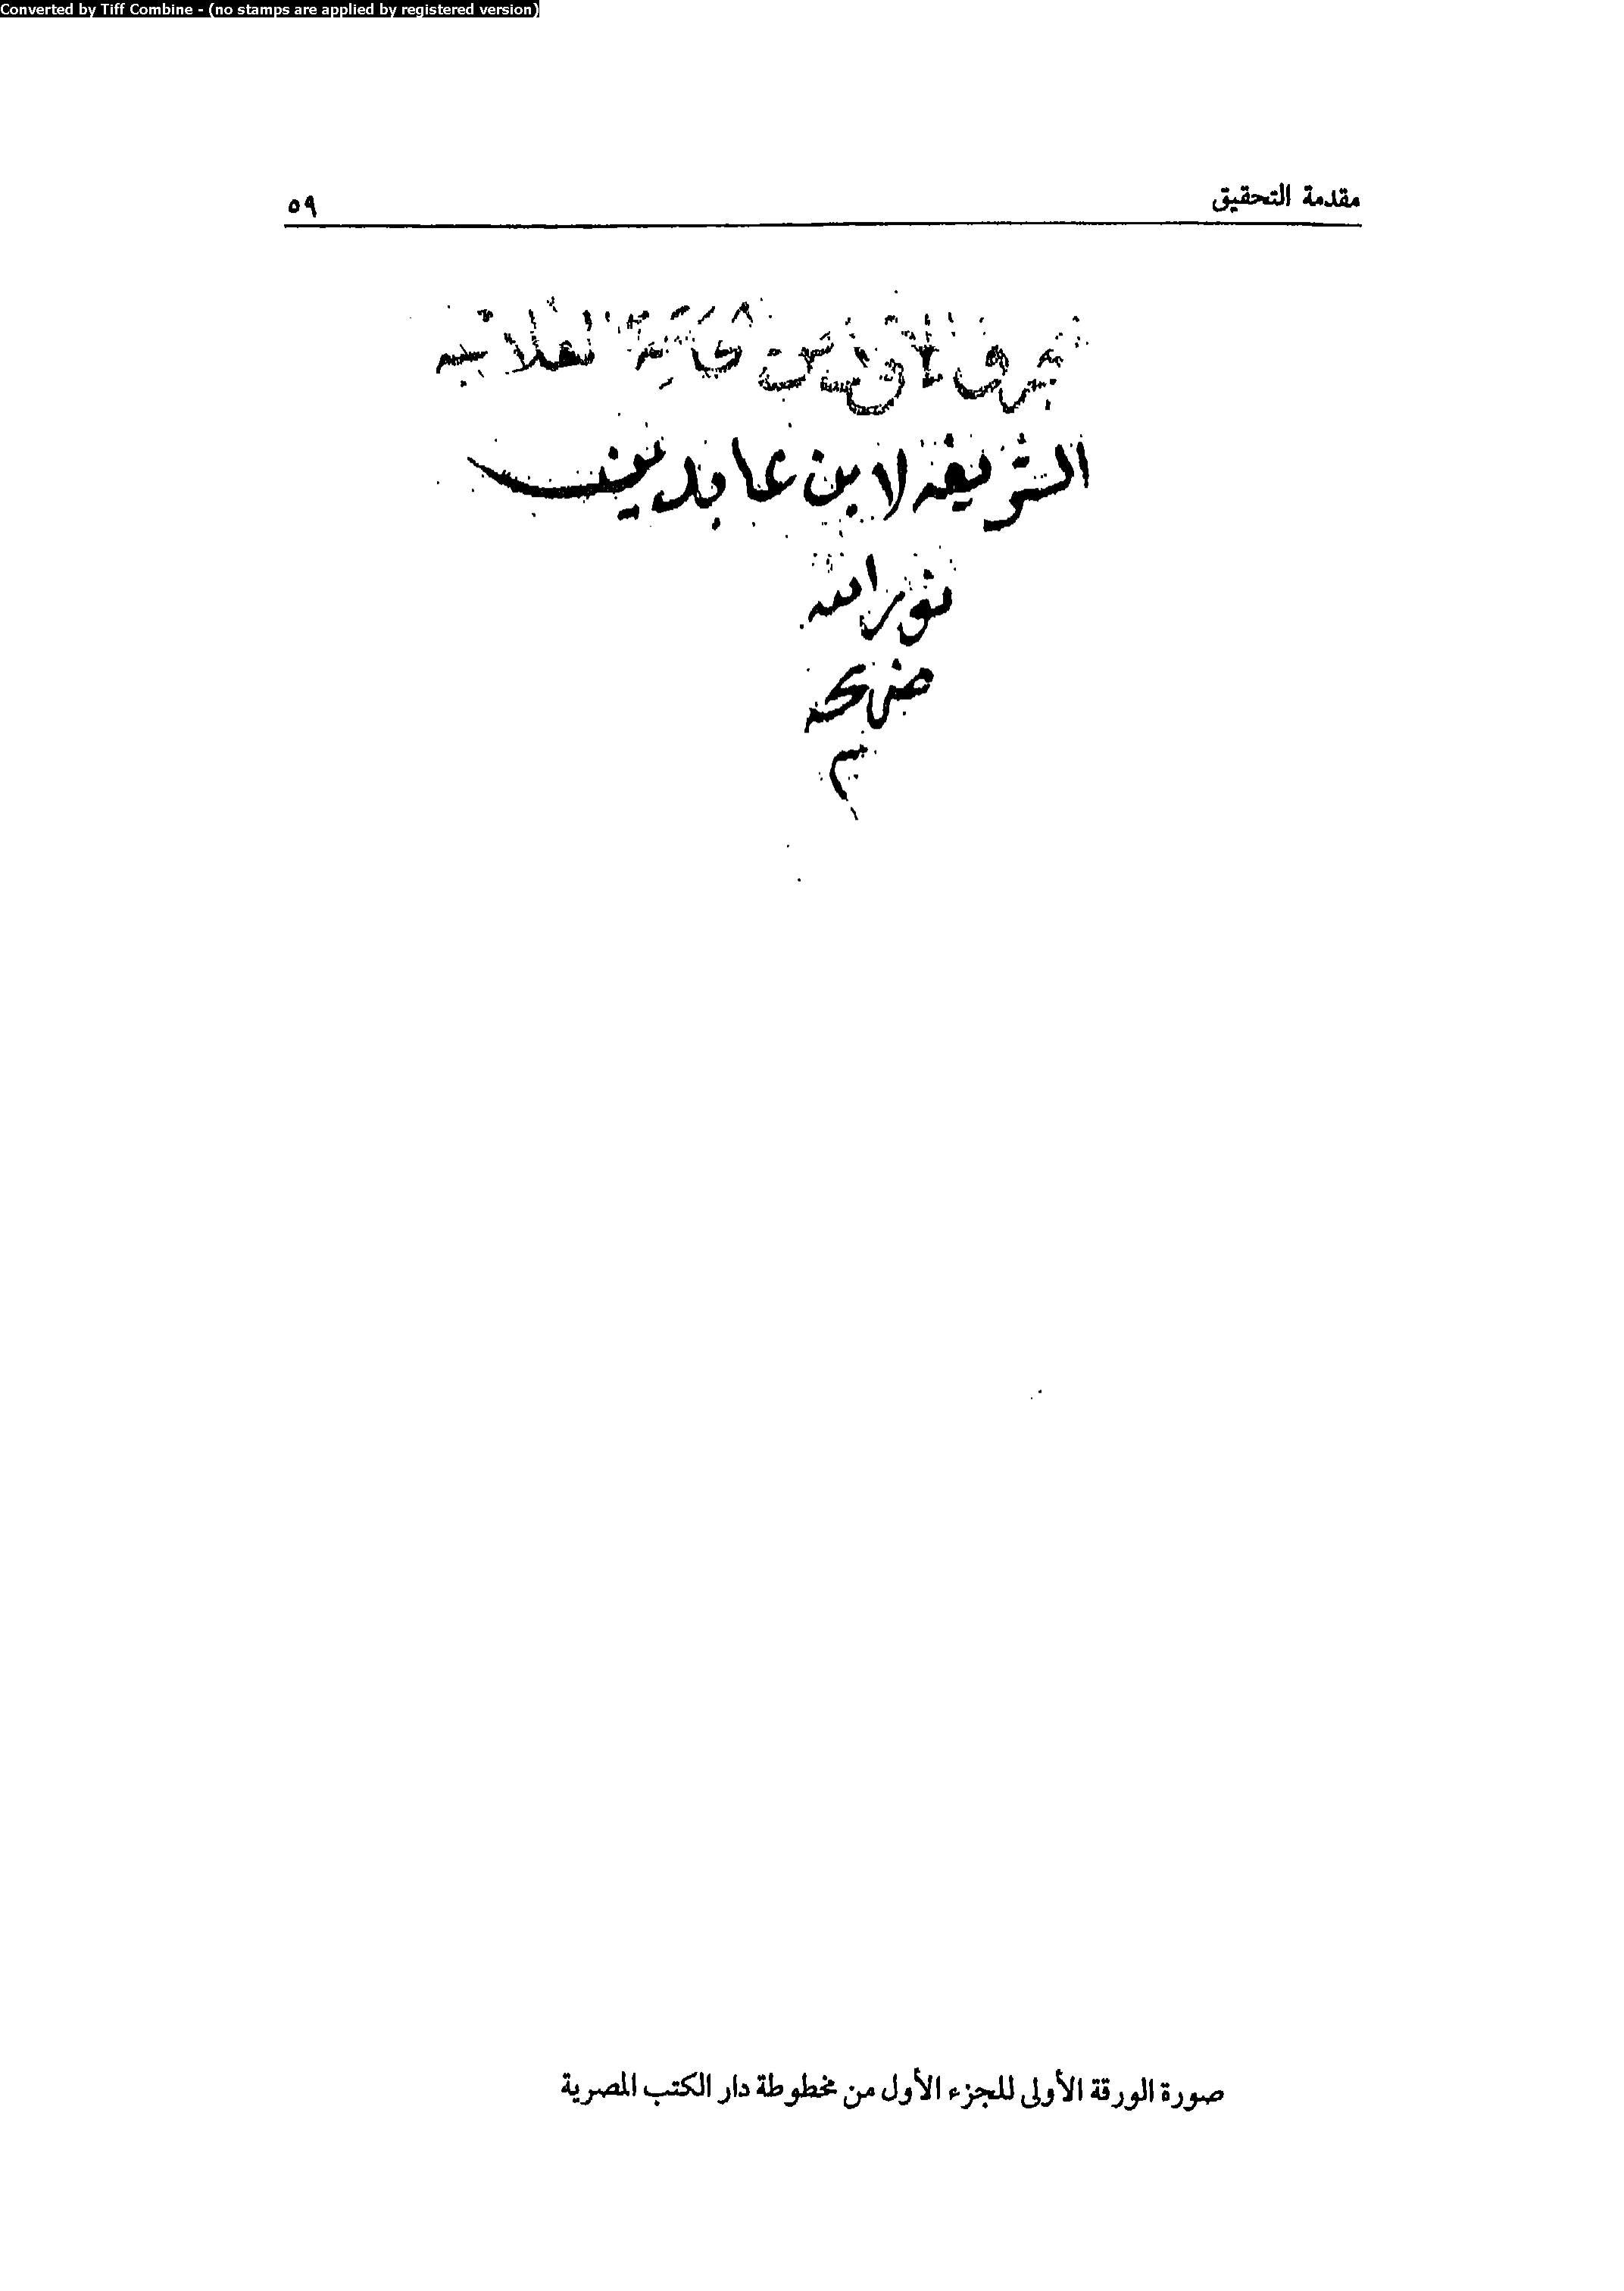 Converted by Tiff Combine - (no stamps are applied by registered version)
مقدمة التحقيق
٥٩
من
الشريفة لابن عابدين
نور الله
ضريحه
م
صورة الورقة الأولى للجزء الأول من مخطوطة دار الكتب المصرية